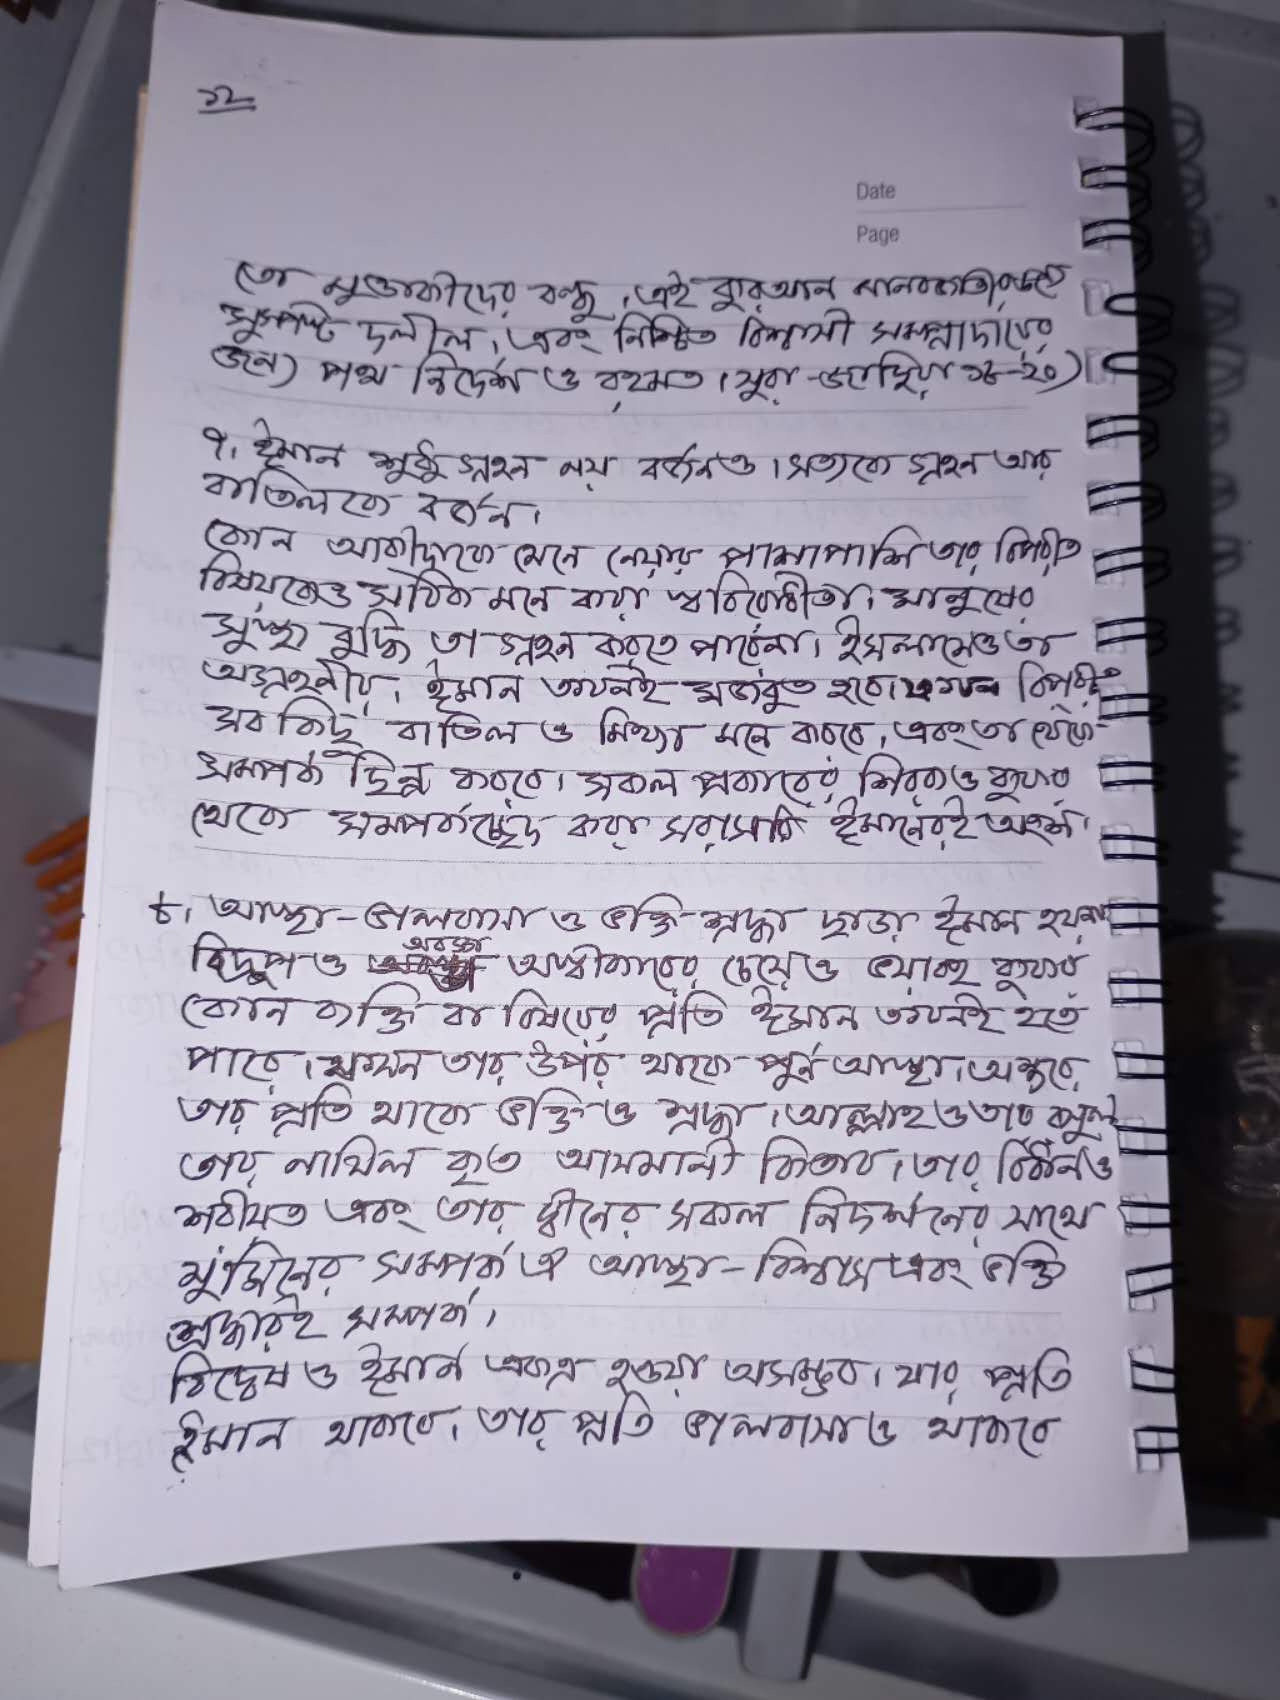 ১২
Date
Page
তো মুত্তাকীদের বন্ধু, এই কুরআন মানবজাতির জন্যে
সুস্পষ্ট দলীল, এবং নিশ্চিত বিশ্বাসী সম্প্রাদায়ের
জন্য পথ নির্দেশ ও রহমত। (সুরা-জাছিয়া ১৮-২০)
৭। ঈমান শুধু গ্রহন নয় বর্জনও। সত্যকে গ্রহন আর
বাতিলকে বর্জন।
কোন আকীদাকে মেনে নেয়ার পাশাপাশি তার বিপরীত
বিষয়কেও সঠিক মনে করা স্ববিরোধীতা। মানুষের
সুস্থ্য বুদ্ধি তা গ্রহন করতে পারেনা। ইসলামেও তা
অগ্রহনীয়, ঈমান তখনই মজবুত হবে। যখন বিপরীত
সব কিছু বাতিল ও মিথ্যা মনে করবে, এবং তা থেকে
সম্পর্ক ছিন্ন করবে। সকল প্রকারের শিরক ও কুফর
থেকে সম্পর্কচ্ছেদ করা সরাসরি ঈমানেরই অংশ।
৮। আস্থা-ভালবাসা ও ভক্তি-শ্রদ্ধা ছাড়া ঈমান হয়না
বিদ্রুপ ও অবজ্ঞা অস্বীকারের চেয়েও ভয়াবহ কুফর
কোন ব্যক্তি বা বিষয়ের প্রতি ঈমান তখনই হতে
পারে, যখন তার উপর থাকে পূর্ন আস্থা, অন্তরে
তার প্রতি থাকে ভক্তি ও শ্রদ্ধা। আল্লাহ ও তার রসুল
তার নাযিল কৃত আসমানী কিতাব, তার বিধান ও
শরীয়ত এবং তার দ্বীনের সকল নিদর্শনের সাথে
মু'মিনের সম্পর্ক ঐ আস্থা-বিশ্বাস এবং ভক্তি
শ্রদ্ধারই সম্পর্ক।
বিদ্বেষ ও ঈমান একত্র হওয়া অসম্ভব। যার প্রতি
ঈমান থাকবে, তার প্রতি ভালবাসাও থাকবে